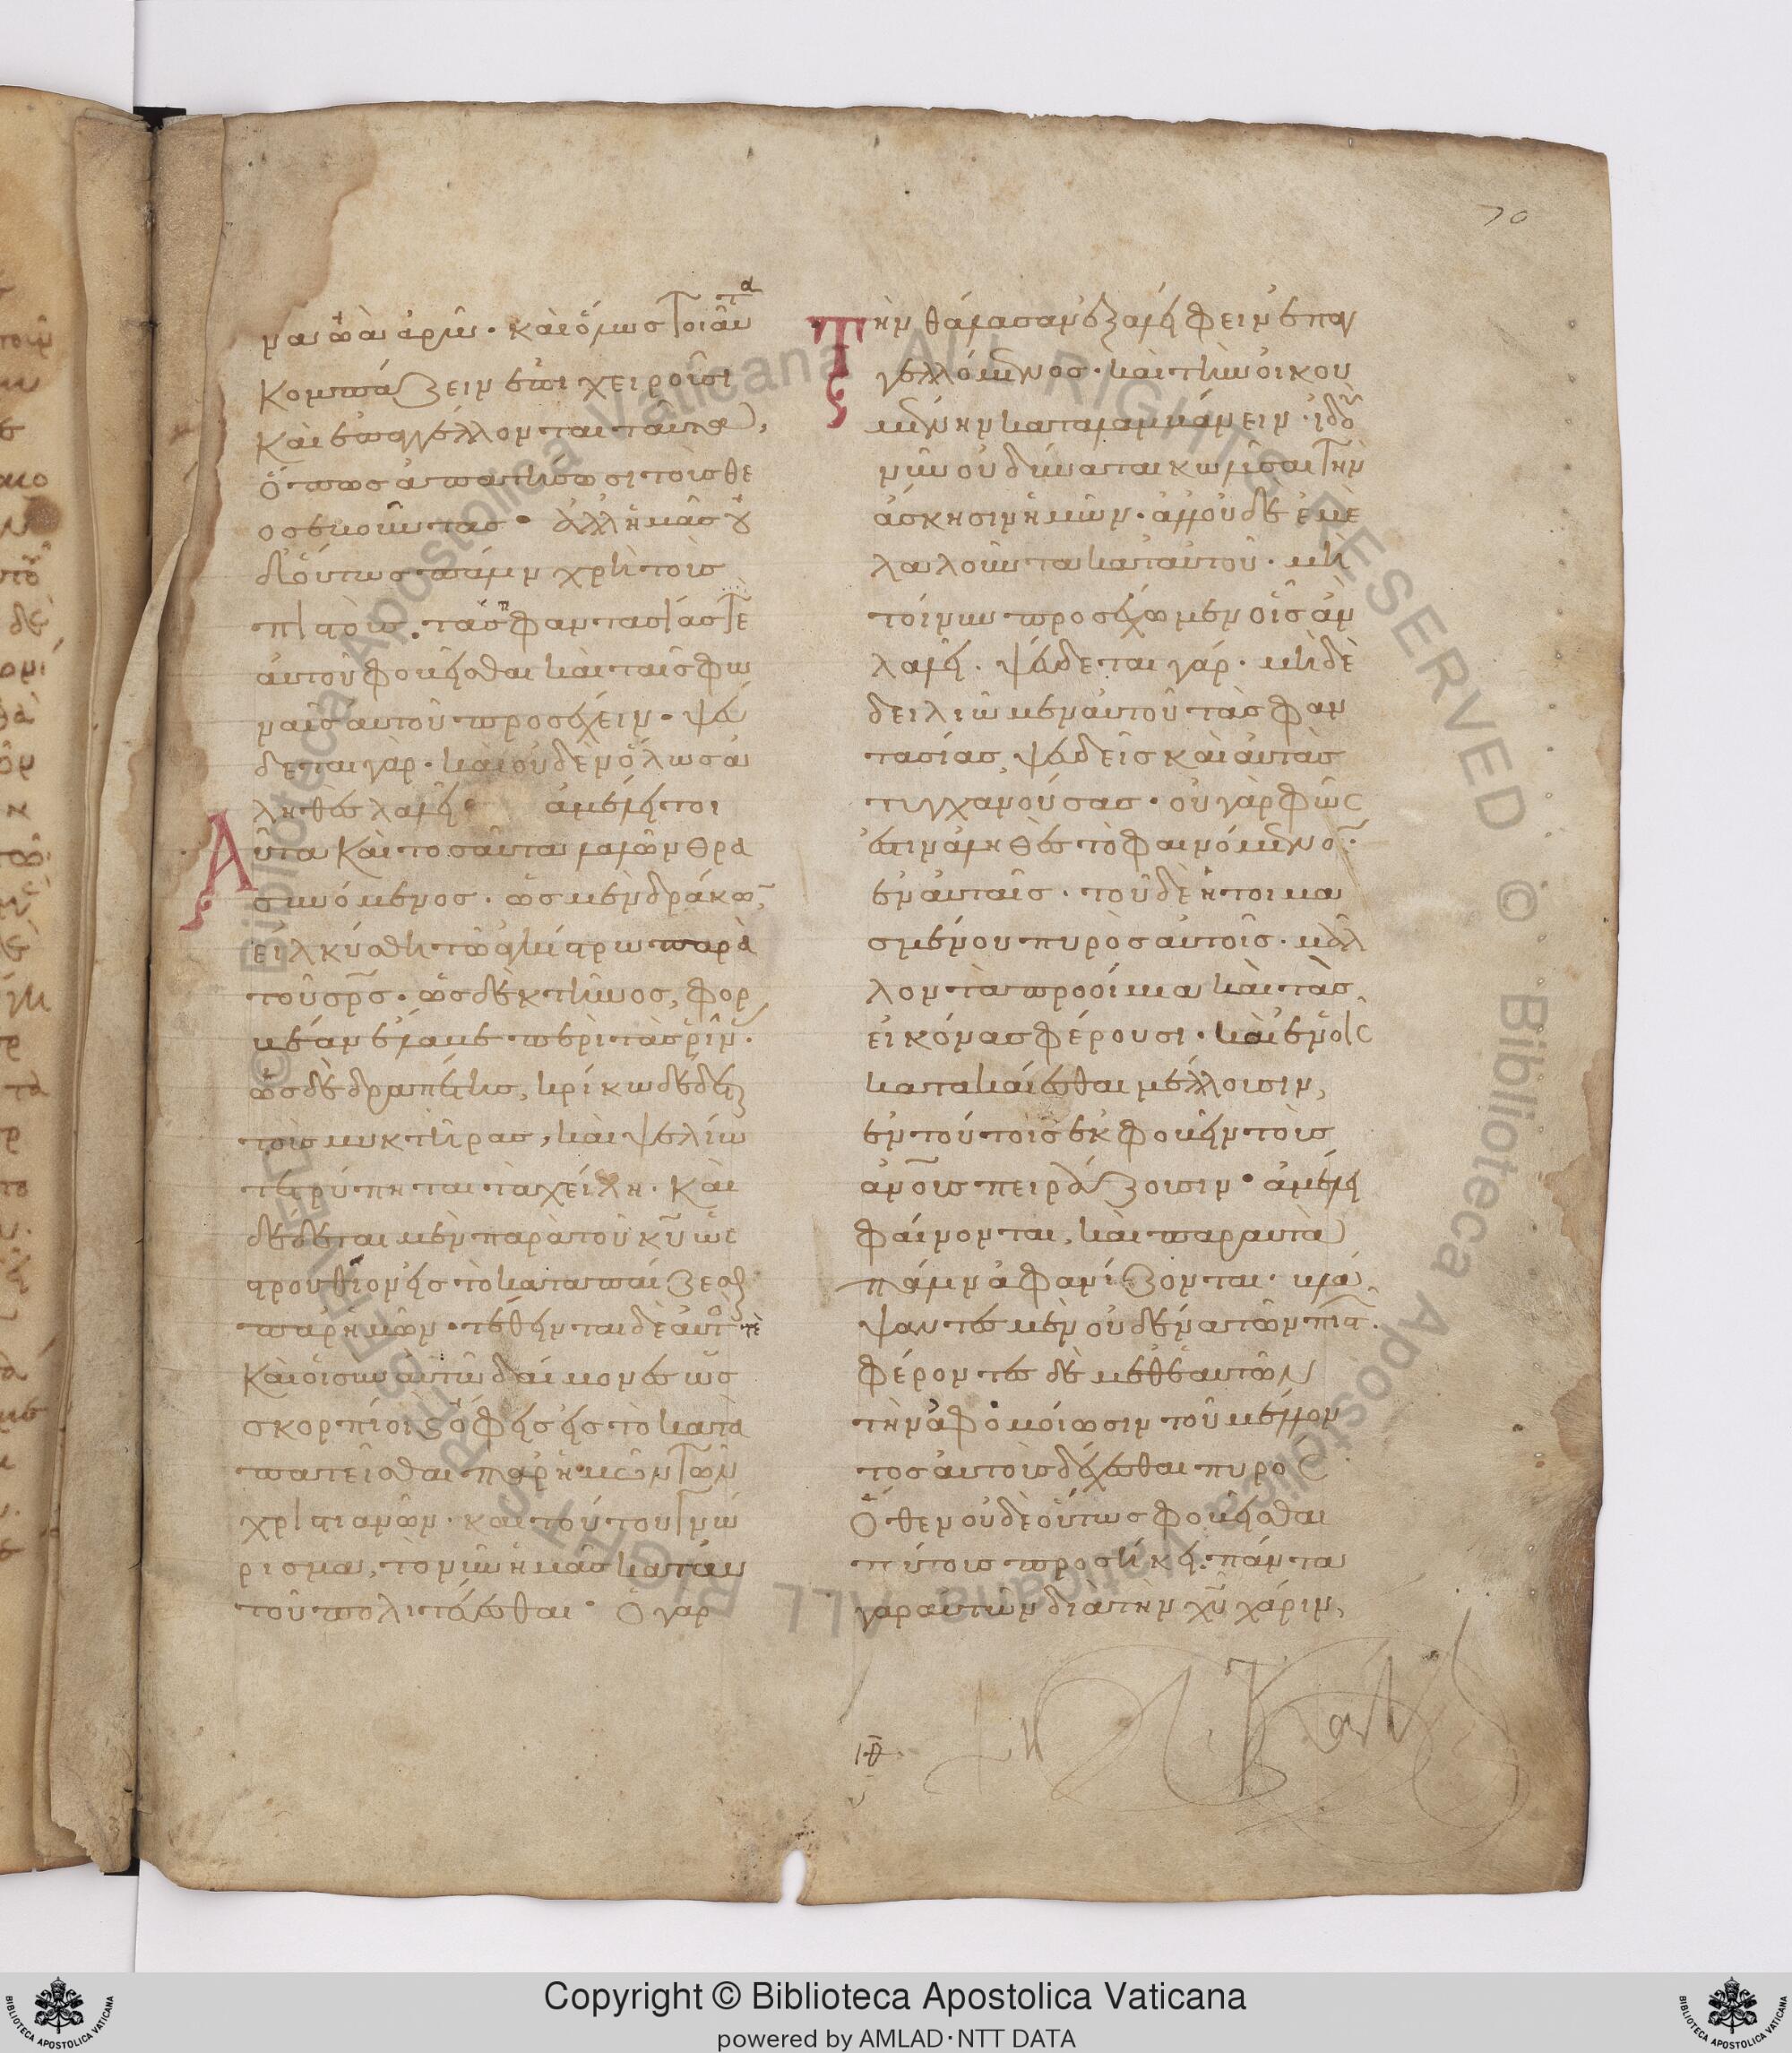 να ὠὰ ἀρῶ· καὶ ὅμως τοιαῦτα
κομπάζειν ἐπιχειροῦσι
καὶ ἐπαγγέλλονται ταῦτα,
ὅπως ἀπατήσωσι τοὺς θε
οσεβοῦντας· ἀλλ ἡμᾶς οὐ
δ οὕτως πάλιν χρὴ τοὺς
πιστοὺς τὰς φαντασίας τε
αὐτοῦ φοβεῖσθαι καὶ ταῖς φω
ναῖς αὐτοῦ προσέχειν· ψεύ
δεται γὰρ· καὶ οὐδὲν ὅλως ἀ
ληθὲς λαλεῖ· ἀμέλει τοι
αῦτα καὶ τοσαῦτα λαλῶν θρα
συνόμενος· ὡς μὲν δράκω̄,
εἱλκύσθη τῷ ἀγκίστρω παρὰ
τοῦ σρ̅ς· ὡς δὲ κτῆνος, φορ
βέαν ἔλαβε περὶ τὰς ῥῖν·
ὡς δὲ δραπέτης, κρίκω δέδεται
τοὺς μυκτῆρας, καὶ ψελίω
τετρύπηται τὰ χείλη· καὶ
δέδεται μὲν παρὰ τοῦ κ̅υ ὡς
στρουθίον εἰς τὸ καταπαίζεσθαι
παρ ἡμῶν· τέθειται δὲ αὐτός τὲ
καὶ οἱ σὺν αὐτῷ δαίμονες ὡς
σκορπίοι καὶ ὄφεις εἰς τὸ κατα
πατεῖσθαι παρ ἡμῶν τῶν
χριστιανῶν· καὶ τούτου γνώ
ρισμα, τὸ νῦν ἡμᾶς κατ αυ
τοῦ πολιτεύεσθαι· ὁ γὰρ
τὴν θάλασσαν ἐξαλείφειν ἐπαγ
γελλόμενος· καὶ τὴν οἰκου
μένην καταλαμβάνειν· ἰδοὺ
νῦν οὐ δύναται κωλῦσαι τὴν
ἄσκησιν ἡμῶν· ἀλλ οὐδὲ ἐμὲ
λαλοῦντα κατ αὐτοῦ· μὴ
τοίνυν προσέχωμεν οἷς ἂν
λαλῇ· ψεύδεται γάρ· μὴ δὲ
δειλιῶμεν αὐτοῦ τὰς φαν
τασίας, ψευδεῖς καὶ αὐτὰς
τυγχανούσας· οὐ γὰρ φῶς
ἐστιν ἀληθὲς τὸ φαινόμενο̄·
ἐν αὐταῖς· τοῦ δὲ ἡτοιμα
σμένου πυρὸς αὐτοῖς· μᾶλ
λον τὰ προοίμια καὶ τὰς
εἰκόνας φέρουσι· καὶ ἐν οἷς
κατακαίεσθαι μέλλουσιν,
ἐν τούτοις ἐκφοβεῖν τοὺς
ἀν̅ους πειράζουσιν· ἀμέλει
φαίνονται, καὶ παραυτὰ
πάλιν ἀφανίζονται· βλά
ψαντες μὲν οὐδένα τῶν πιστ·
φέροντες δὲ μεθ ἑαυτῶν
τὴν ἀφομοίωσιν τοῦ μέλλον
τος αὐτοὺς δέχεσθαι πυρός
ὅθεν οὐδὲ οὕτως φοβεῖσθαι
τούτους προσήκει· πάντα
γὰρ αὐτῶν διὰ τὴν χ̅υ χάριν,
70
ιθ